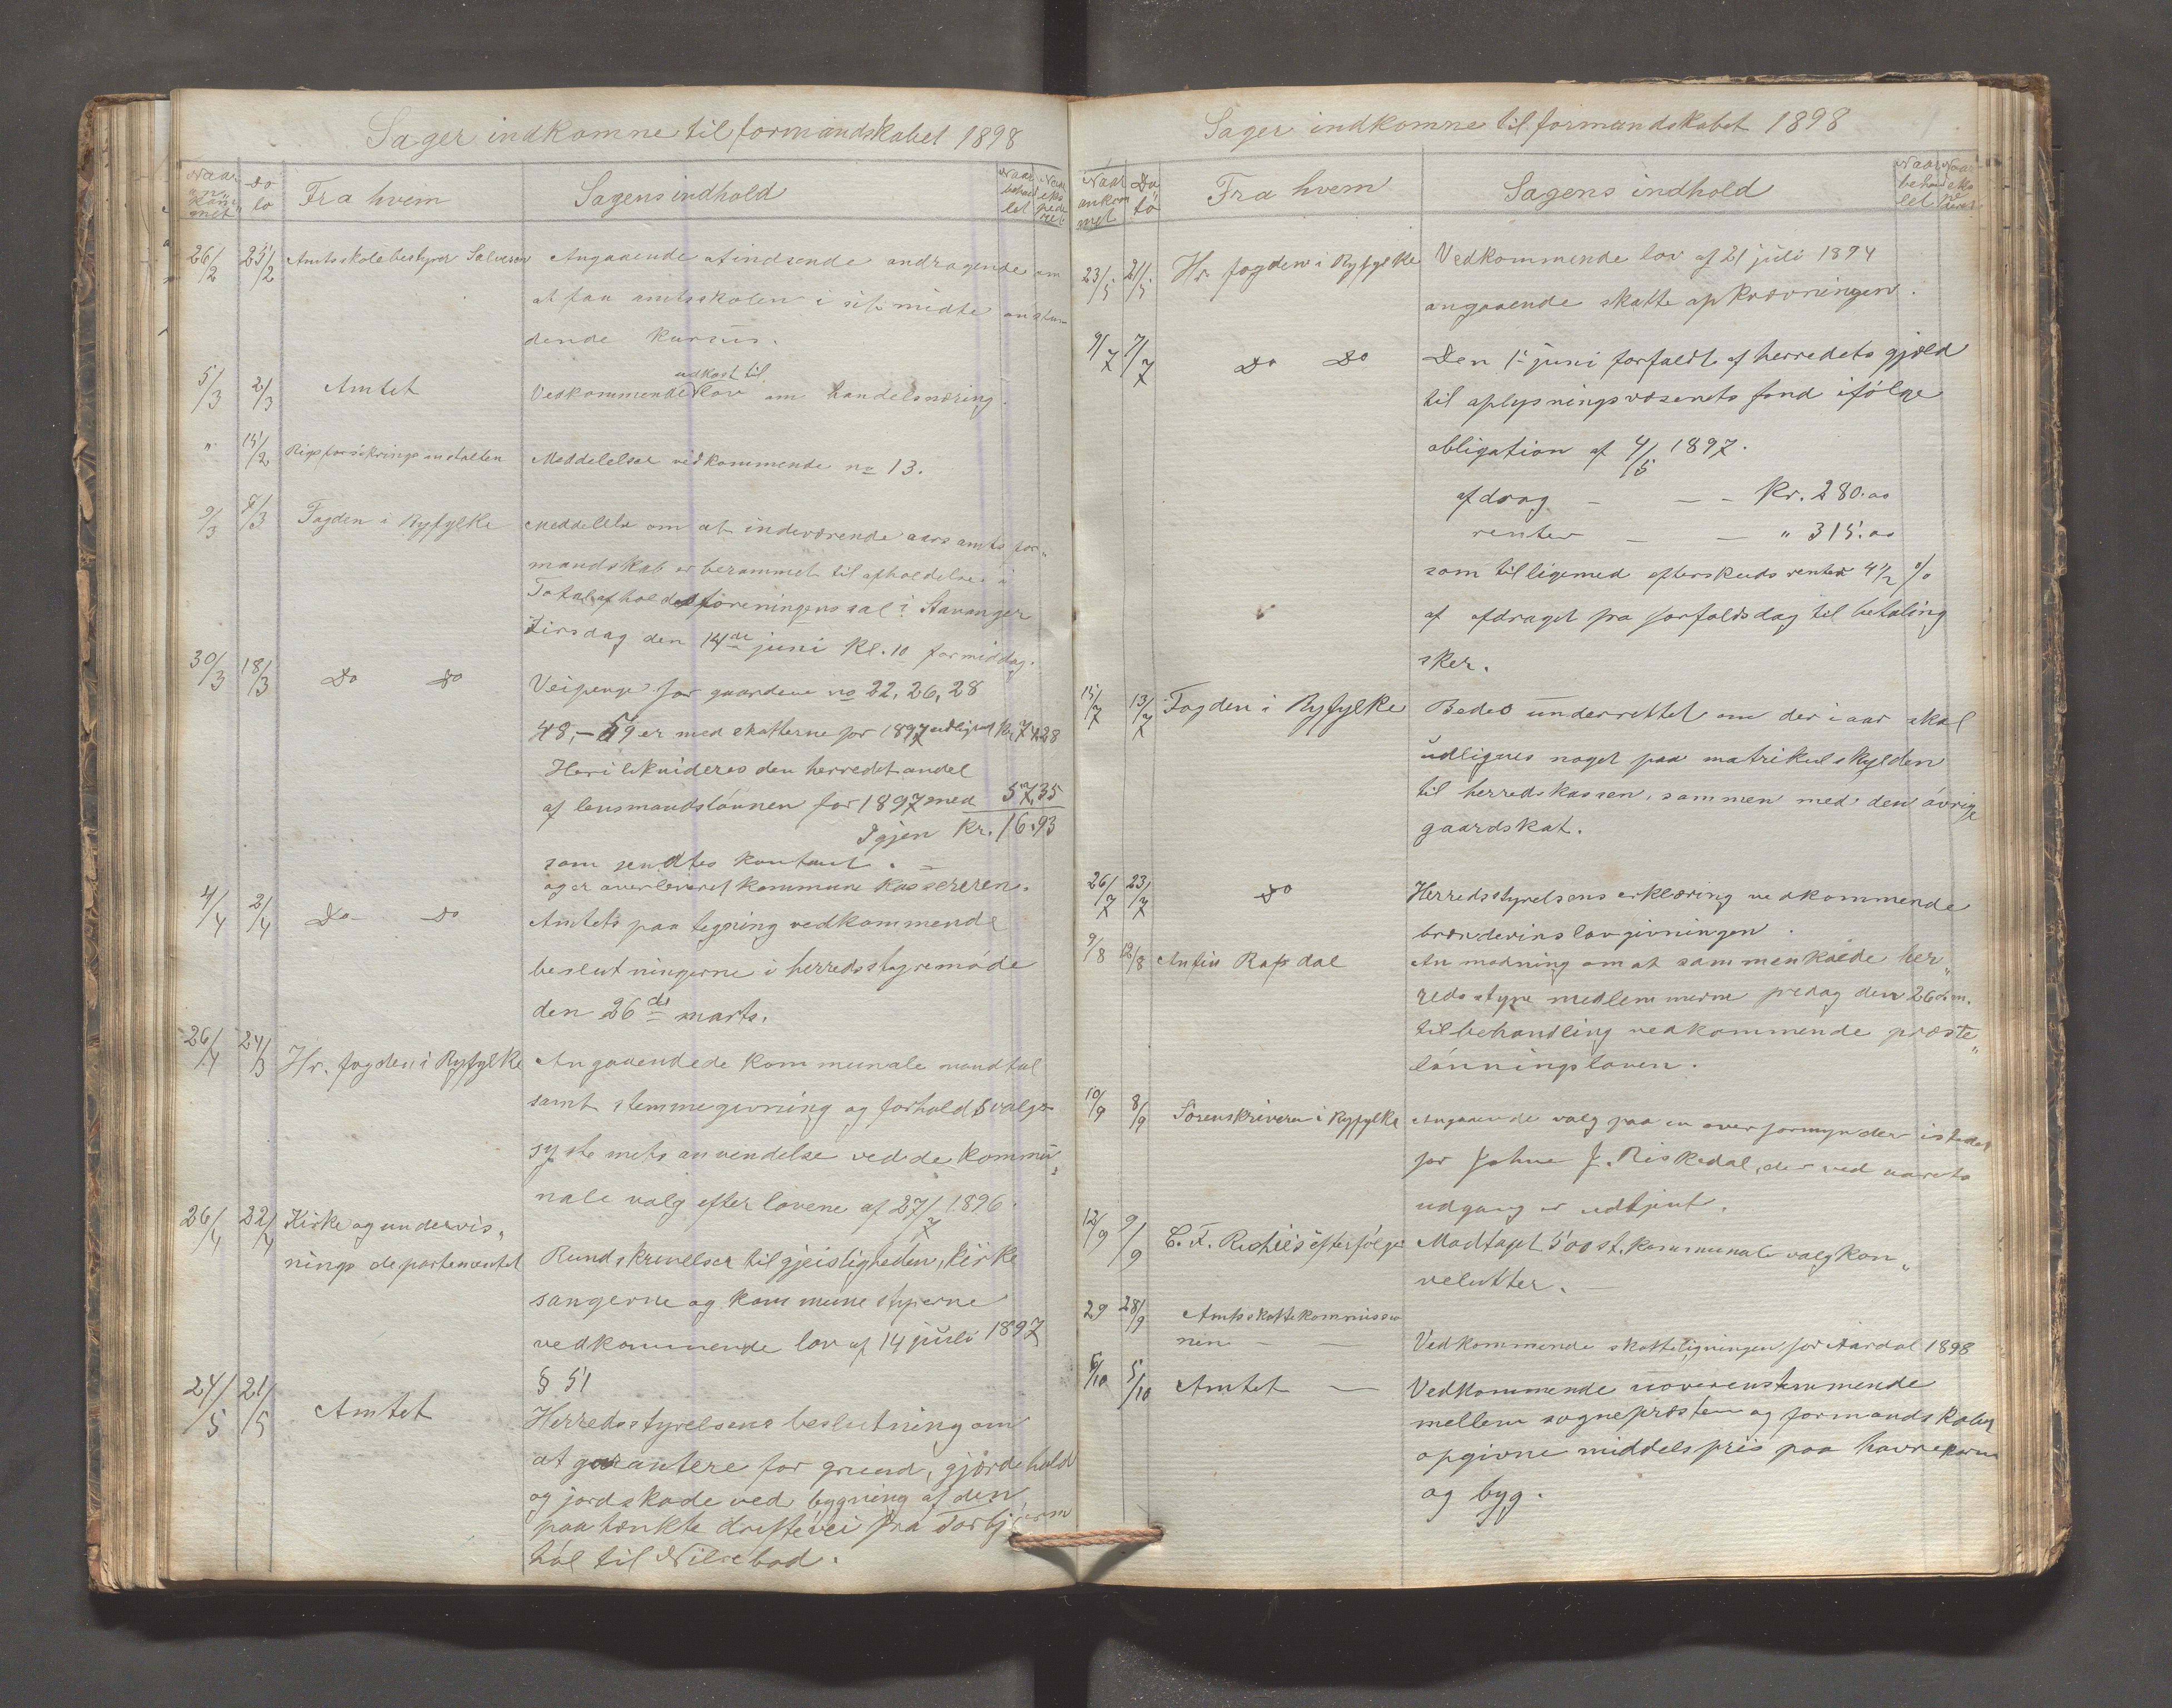 Sager indkomne til formandskabet 1898
Naar ankommet
Da to
Fra hvem
Sagens indhold
Naar behandlet
Naar ekspederet
26/2 25/2 Amtsskolebestyrer Salvesen Angaaende at indsende andragende om
at faa amtsskolen i sit midte
dende kursus.
5/3 2/3 Amtet Vedkommende udkast til lov om handelsnæring.
" 15/2 Rigsforsikringsanstalten Meddelelser vedkommende no 13.
9/3 8/3 Fogden i Ryfylke Meddelelse om at indeværende aars amtsfor„
mandskab er berammet til afholdelse i
Totalafholdsforeningens sal i Stavanger
tirsdag den 14de juni kl. 10 formiddag.
30/3 18/3 Do Do Veipenge for gaardene no 22, 26, 28
48,-59 er med skatterne for 1897 udlignet kr. 74.28
Heri likvideres den herredet andel
af lensmandslønnen for 1897 med 57,35
Igjen kr. 16.93
som sendtes kontant. –
og er overleveret kommune kassereren.
4/4 2/4 Do Do Amtets paategning vedkommende
beslutningerne i herredsstyremøde
den 26de marts.
26/4 24/3 Hr. fogden i Ryfylke Angaaendede kommunale mandtal
samt stemmegivning og forholdsvalgs
systemets anvendelse ved de kommu„
nale valg efter lovene af 27/7 1896.
26/4 22/4 Kirke og undervis„
nings departementet Rundskrivelser til gjeistligheden, kirke
sangerne og kommunestyrerne
vedkommende lov af 14 juli 1897
§ 51
24/5 21/5 Amtet Herredsstyrelsens beslutning om
at garantere for grund, gjærdehold
og jordskade ved bygning af den
paatænkte driftevei fra Torbjørn
høl til Nilsebod.
Sager indkomne til formandskabet 1898
Naar ankommet
Da to
Fra hvem
Sagens indhold
Naar behandlet
Naar ekspederet
23/5 21/5 Hr. fogden i Ryfylke Vedkommende lov af 21 juli 1894
angaaende skatte opkrævningen.
9/7 7/7 Do Do Den 1. juni forfaldt af herredets gjæld
til oplysningsvæsenets fond ifølge
obligation af 4/5 1897.
afdrag – – – kr. 280.00
renter – – " 315.00
som tilligemed efterskuds renter 4 1/2 %
af afdraget fra forfaldsdag til betaling
sker.
15/7 13/7 Fogden i Ryfylke Bedes underrettet om der i aar skal
udlignes noget paa matrikulskylden
til herredskassen, sammen med den øvrige
gaardskat.
26/7 23/7 Do Herredsstyrelsens erklæring vedkommende
brænderinslovgivningen.
9/8 12/8 Anfin Rapdal Anmodning om at sammenkalde her„
redsstyre medlemmerne fredag den 26 d.m.
til behandling vedkommende præste„
lønningsloven.
10/9 8/9 Sorenskriveren i Ryfylke Angaaende valg paa en overformynder istedet
for Johne J. Riskedal, der ved aarets
udgang er udtjent.
12/9 9/9 C. F. efterfølger Modtaget 500 st. kommunale valgkon„
velutter. –
29 28/9 Amtsskattekommissio
nen – – Vedkommende skatteligningen for Aardal 1898
6/10 5/10 Amtet – Vedkommende uoverenstemmende
mellem sognepræsten og formandskabet
opgivne middelspris paa havrekorn
og byg.